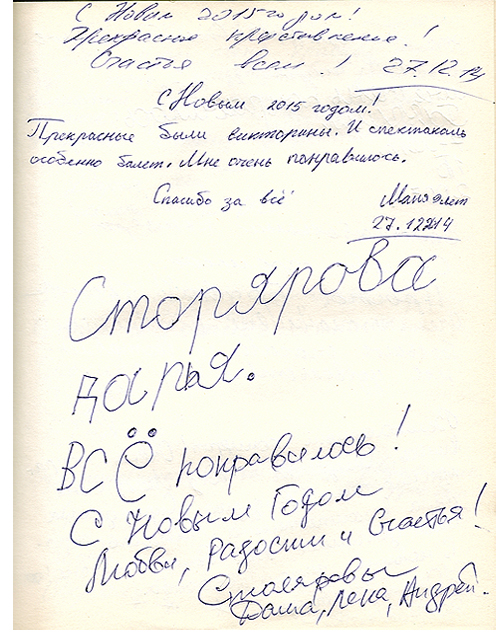 С Новым 2015 годом!
Прекрасное представление!
Счастья всем! 27.12.14
С Новым 2015 годом!
Прекрасные были викторины. И спектакаль
особенно балет. Мне очень панравилось.
Спасибо за всё 9 лет
27.12214
Сторярова
дарья.
ВСЁ понравилось!
С Новым Годом
Любви, радости и Счастья!
Столяровы
Даша, Лена, Андрей.